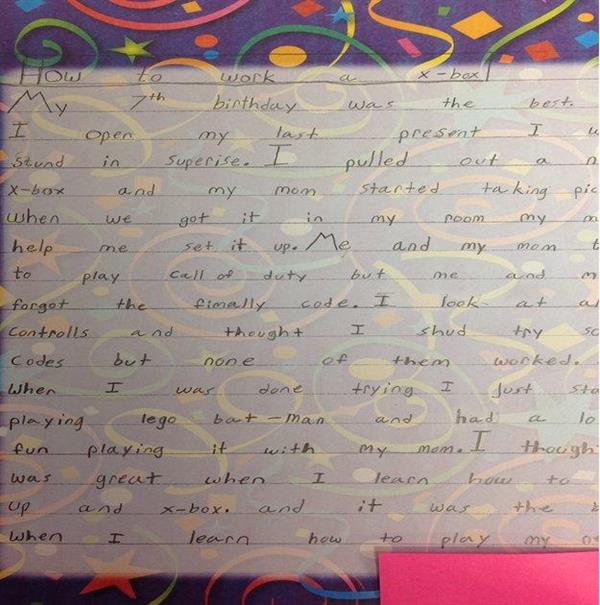 How to work a x-box!
My 7th birthday was the best.
I open my last present I
Stund in superise. I pulled out a
x-box and my mom started taking pic
when we got it in my room my
help me set it up. Me and my mom
to play call of duty but me and
forgot the fimally code. I look at
controlls and thought I shud try
codes but none of them worked.
When I was done trying I just sta
playing lego bat-man and had a lo
fun playing it with my mom. I though
was great when I learn how to
up and x-box. and it was the
when I learn how to play my